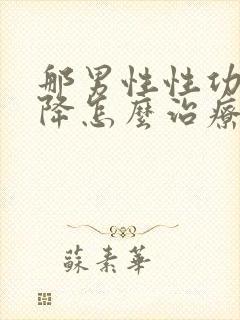 那男性性功
降怎麼治療
蘇素華